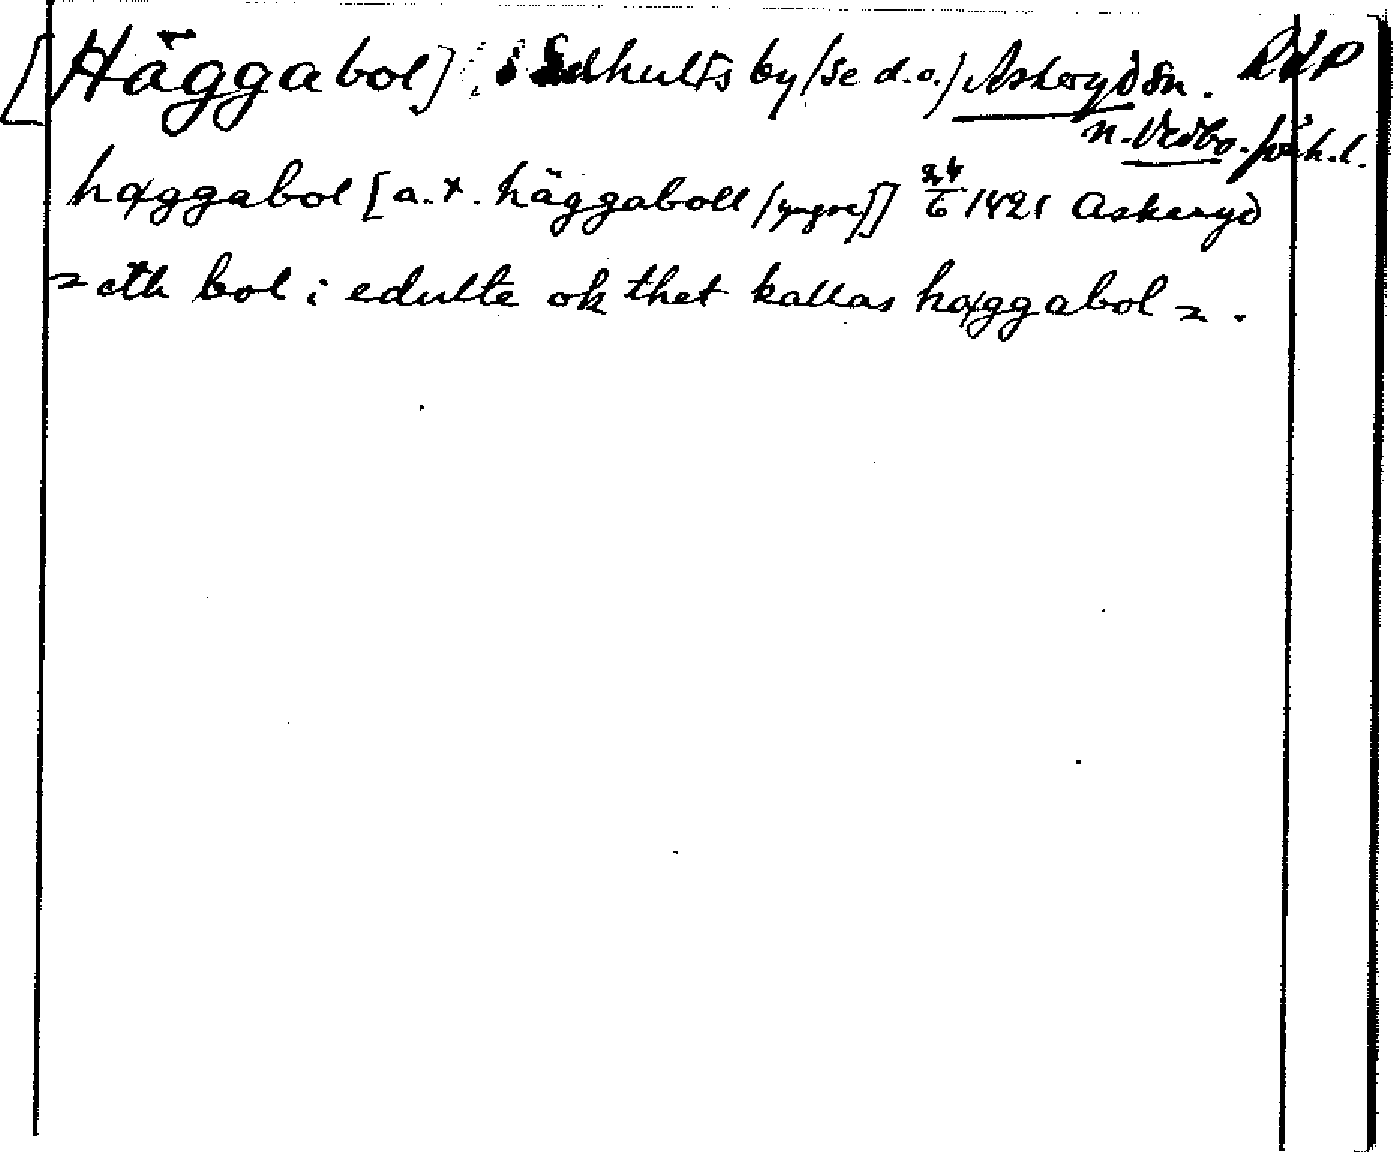 [Häggabol] i Edhults by (se d.o.) Askeryd sn. RAP
n. Vedbo. Jönk. l.
hæggabol [a.t. häggaboll (yngre)] 24/6 1421 Askeryd
= eth bol i edulte ok thet kallas hæggabol = .